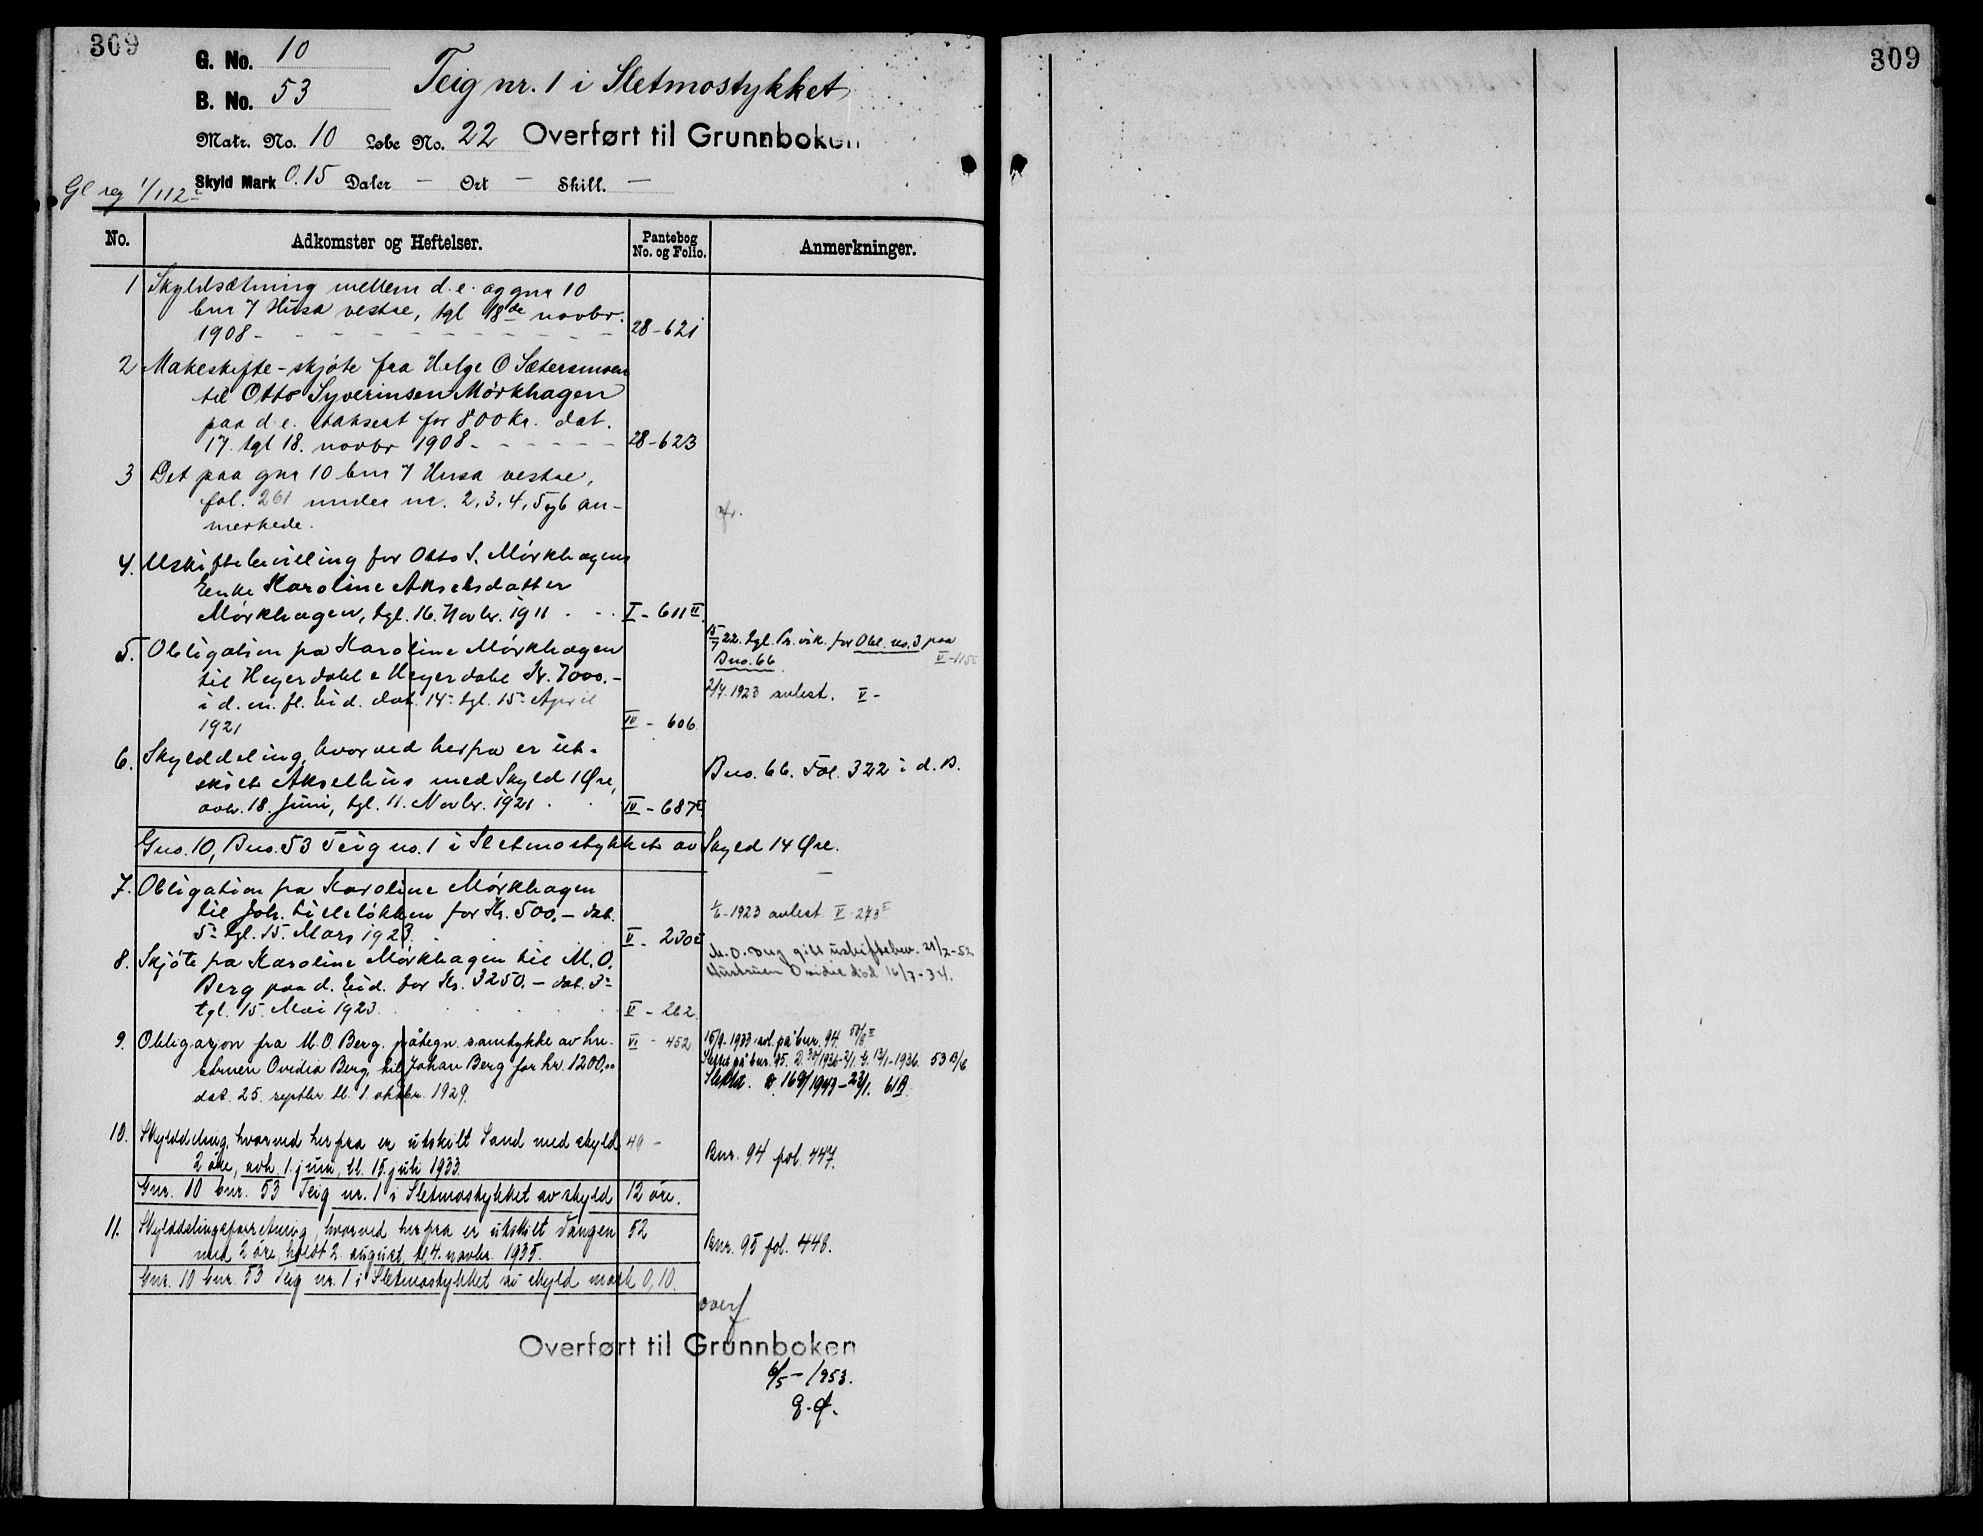 309
309
G. No. 10
B. No. 53
Teig nr. 1 i Sletmostykket
Matr. No. 10 Løbe No. 22 Overført til Grunnboken
Skyld Mark 0.15 Daler — Ort — Skill. —
Gl reg 1/112
No. Adkomster og Heftelser. Pantebog No. og Folio. Anmerkninger.
1 Skyldsætning mellem d. e. og gnr 10
bnr 7 Husa vestre, tgl 18de novbr.
1908 - 28-621
2 Makeskifte-skjøte fra Helge O Sætersmoen
til Otto Syverinsen Mørkhagen
paa d. e. taksert for 800 Kr. dat.
17. tgl 18. novbr 1908 - 28-623
3 Det paa gnr 10 bnr 7 Husa vestre,
fol. 261 under nr. 2, 3, 4, 5 og 6 an-
merkede.
4. Uskiftebevilling for Otto S. Mørkhagens
Enke Karoline Akselsdatter
Mørkhagen, tgl. 16. Novbr. 1911 I - 611 II
5. Obligation fra Karoline Mørkhagen
til Heyerdahl & Heyerdahl Kr. 7000.-
i d. m. fl. Eid. dat. 14- tgl. 15- April
1921 IV - 606
15/7 22. tgl. Pr. vik. for Obl. no. 3 paa
Bno. 66 V-115
2/4. 1923 avlest. V -
6. Skylddeling, hvorved herfra er ut-
skilt Akselhus med Skyld 1 Øre,
avh. 18. Juni, tgl. 11. Novbr. 1921 IV - 687
Bno. 66. Fol. 322 i d. B.
Gno. 10, Bno. 53 Teig no. 1 i Sletmostykket av Skyld 14 Øre.
7. Obligation fra Karoline Mørkhagen
til Joh. Lilleløkken for Kr. 500.- dat.
5- tgl. 15. Mars 1923. V - 230
1/6-1923 avlest V-273
8. Skjøte fra Karoline Mørkhagen til M. O.
Berg paa d. Eid. for Kr. 3250.- dat. 3-
tgl. 15. Mai 1923. V - 262
M. O. Berg gitt uskiftebev. 21/2-52
Hustruen Ovidia død 16/7-34.
9. Obligasjon fra M. O. Berg, påtegn. samtykke av hu-
struen Ovidia Berg, til Johan Berg for kr. 1200,00
dat. 25. septbr. tl. 1. oktbr. 1929. VI - 452
15/9. 1933 på bnr. 94.
Slettet på bnr. 95. D. 30/1936-2/1. G. 13/1-1936. 53 B/6
Slettet. 169/1943-23/1. 61 B.
10. Skylddeling, hvorved herfra er utskilt Sand med skyld 49 -
2 øre, avh. 1. juni, tl. 15. juli 1933.
Bnr. 94 fol. 447.
Gnr. 10 bnr. 53 Teig nr. 1 i Sletmostykket av skyld 12 øre.
11. Skylddelingsforretning, hvorved herfra er utskilt Vangen 52
med 2 øre, holdt 2. august, tl. 4. novbr. 1935.
Bnr. 95 fol. 448.
Gnr. 10 bnr. 53 Teig nr. 1 i Sletmostykket av skyld mark 0,10.
overf
Overført til Grunnboken
6/5-1953.